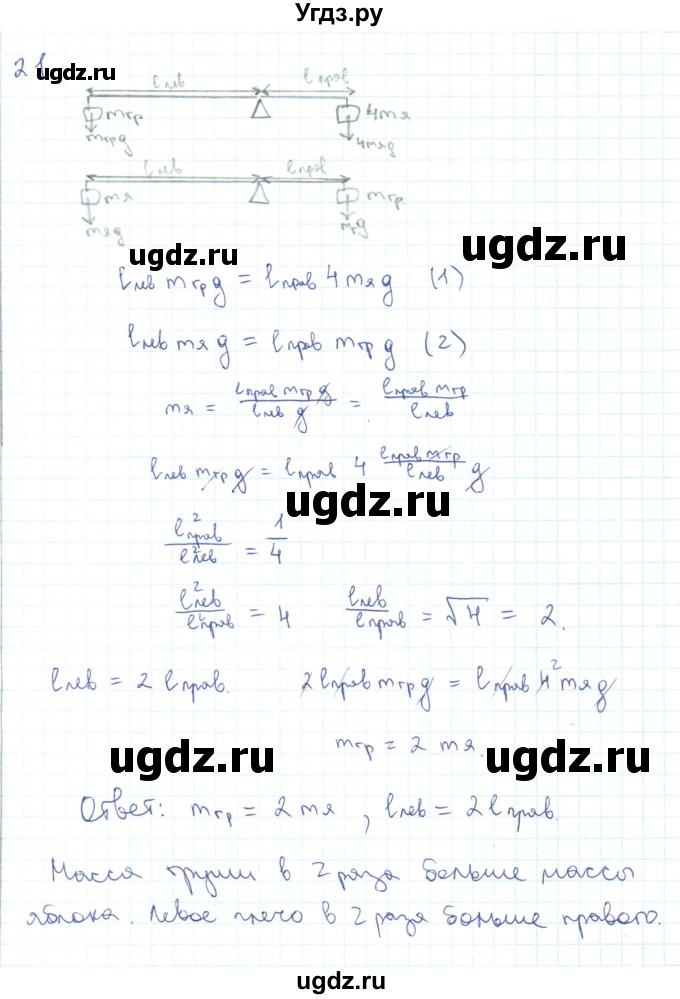 Угдз.ру
21
ugdz.ru
l лев l прав
mгр 4mя
mгрg 4mяg
l лев l прав
mя mгр
mяg mгg
ugdz.ru ugdz.ru
l лев m гр g = l прав 4 m я g (1)
l лев m я g = l прав m гр g (2)
mя = l прав m гр g / l лев g = l прав m гр / l лев
l лев m гр g = l прав 4 l прав m гр / l лев g
ugdz.ru
l² прав / l² лев = 1/4
l² лев / l² прав = 4 l лев / l прав = √4 = 2.
l лев = 2 l прав. 2 l прав m гр g = l прав 4² m я g
ugdz.ru ugdz.ru
m гр = 2 m я.
Ответ: m гр = 2 m я, l лев = 2 l прав.
Масса груши в 2 раза больше массы
яблока. Левое плечо в 2 раза больше правого.
ugdz.ru ugdz.ru
ugdz.ru